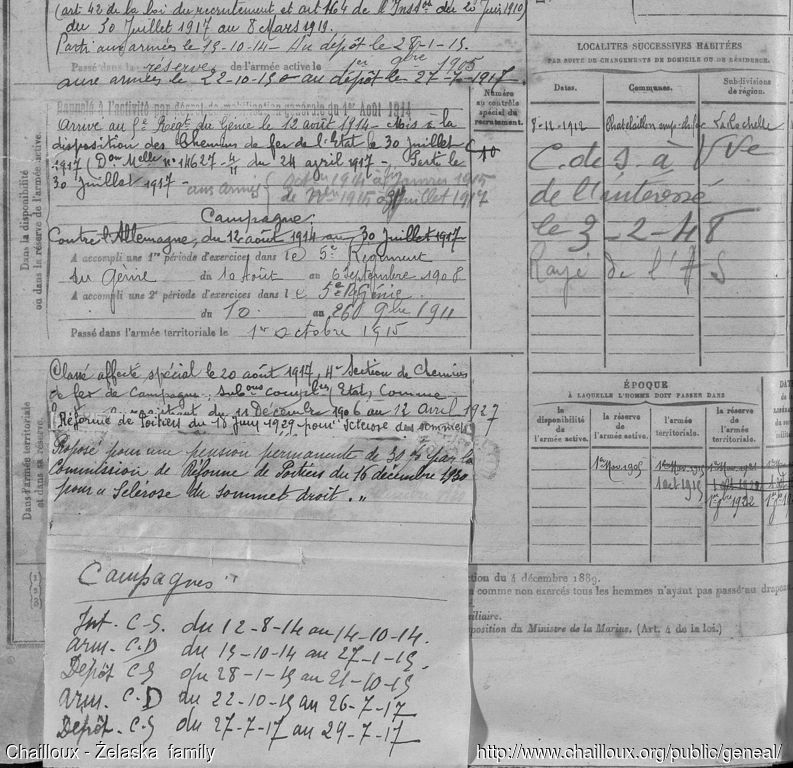 (art 42 de la loi du recrutement et art 164 de l'Inst.on du 20 Juin 1910)
du 30 Juillet 1917 au 8 Mars 1919.
Parti aux armées le 15-10-14 - Au dépôt le 28-1-15.
Passé dans la réserve de l'armée active le 1er 9bre 1905
aux armées le 22-10-15 au dépôt le 27-7-1917.
Rappelé à l'activité par décret de mobilisation générale du 1er Août 1914
Arrivé au 5e Régt du Génie le 12 août 1914 - Mis à la
disposition des Chemins de fer de l'Etat le 30 juillet
1917 (Don Melle n° 14627 du 24 avril 1917 - Parti le
30 Juillet 1917 -
aux armées
1914 à janvier 1915
1915 à Juillet 1917
Campagne.
Contre l'Allemagne, du 12 août 1914 au 30 Juillet 1917
A accompli une 1re période d'exercices dans le 5e Régiment
du Génie du 10 Août au 6 Septembre 1908
A accompli une 2e période d'exercices dans le 5e R. Génie
du 10 au 26 9bre 1911
Passé dans l'armée territoriale le 1er octobre 1915
Dans la disponibilité
ou dans la réserve de l'armée active.
Numéro
au contrôle
spécial du
recrutement.
Classé affecté spécial le 20 août 1917, 4e Section de Chemins
de fer de Campagne, Subons complres (Etat) Comme
du 11 Décembre 1906 au 12 Avril 1927
Réforme de Poitiers du 15 Juin 1929 pour "Sclérose des sommets
Proposé pour une pension permanente de 30 % par la
Commission de Réforme de Poitiers du 16 décembre 1930
pour " Sclérose du sommet droit. "
Dans l'armée territoriale
et dans sa réserve.
Campagnes
Int. C.S. du 12-8-14 au 14-10-14.
Arm. C.D du 15-10-14 au 27-1-15.
Dépôt C.S du 28-1-15 au 21-10-15
Arm. C.D du 22-10-15 au 26-7-17
Dépôt C.S du 27-7-17 au 29-7-17
LOCALITÉS SUCCESSIVES HABITÉES
PAR SUITE DE CHANGEMENTS DE DOMICILE OU DE RÉSIDENCE.
Dates. Communes. Subdivisions
de région.
8-12-1912 Chatelaillon La Rochelle
C. de S. à Vve
de l'intéressé
le 3-2-48
Rayé de l'AS
ÉPOQUE
À LAQUELLE L'HOMME DOIT PASSER DANS
la disponibilité de l'armée active.
la réserve de l'armée active.
l'armée territoriale.
la réserve de l'armée territoriale.
1er Nov 1905 1er Nov 1915 1er Nov 1921
1 oct 1915
1er 9bre 1922
ction du 4 décembre 1889.
comme non exercés tous les hommes n'ayant pas passé au drapeau
iliaire.
sposition du Ministre de la Marine. (Art. 4 de la loi.)
Chailloux - Żelaska family
http://www.chailloux.org/public/geneal/